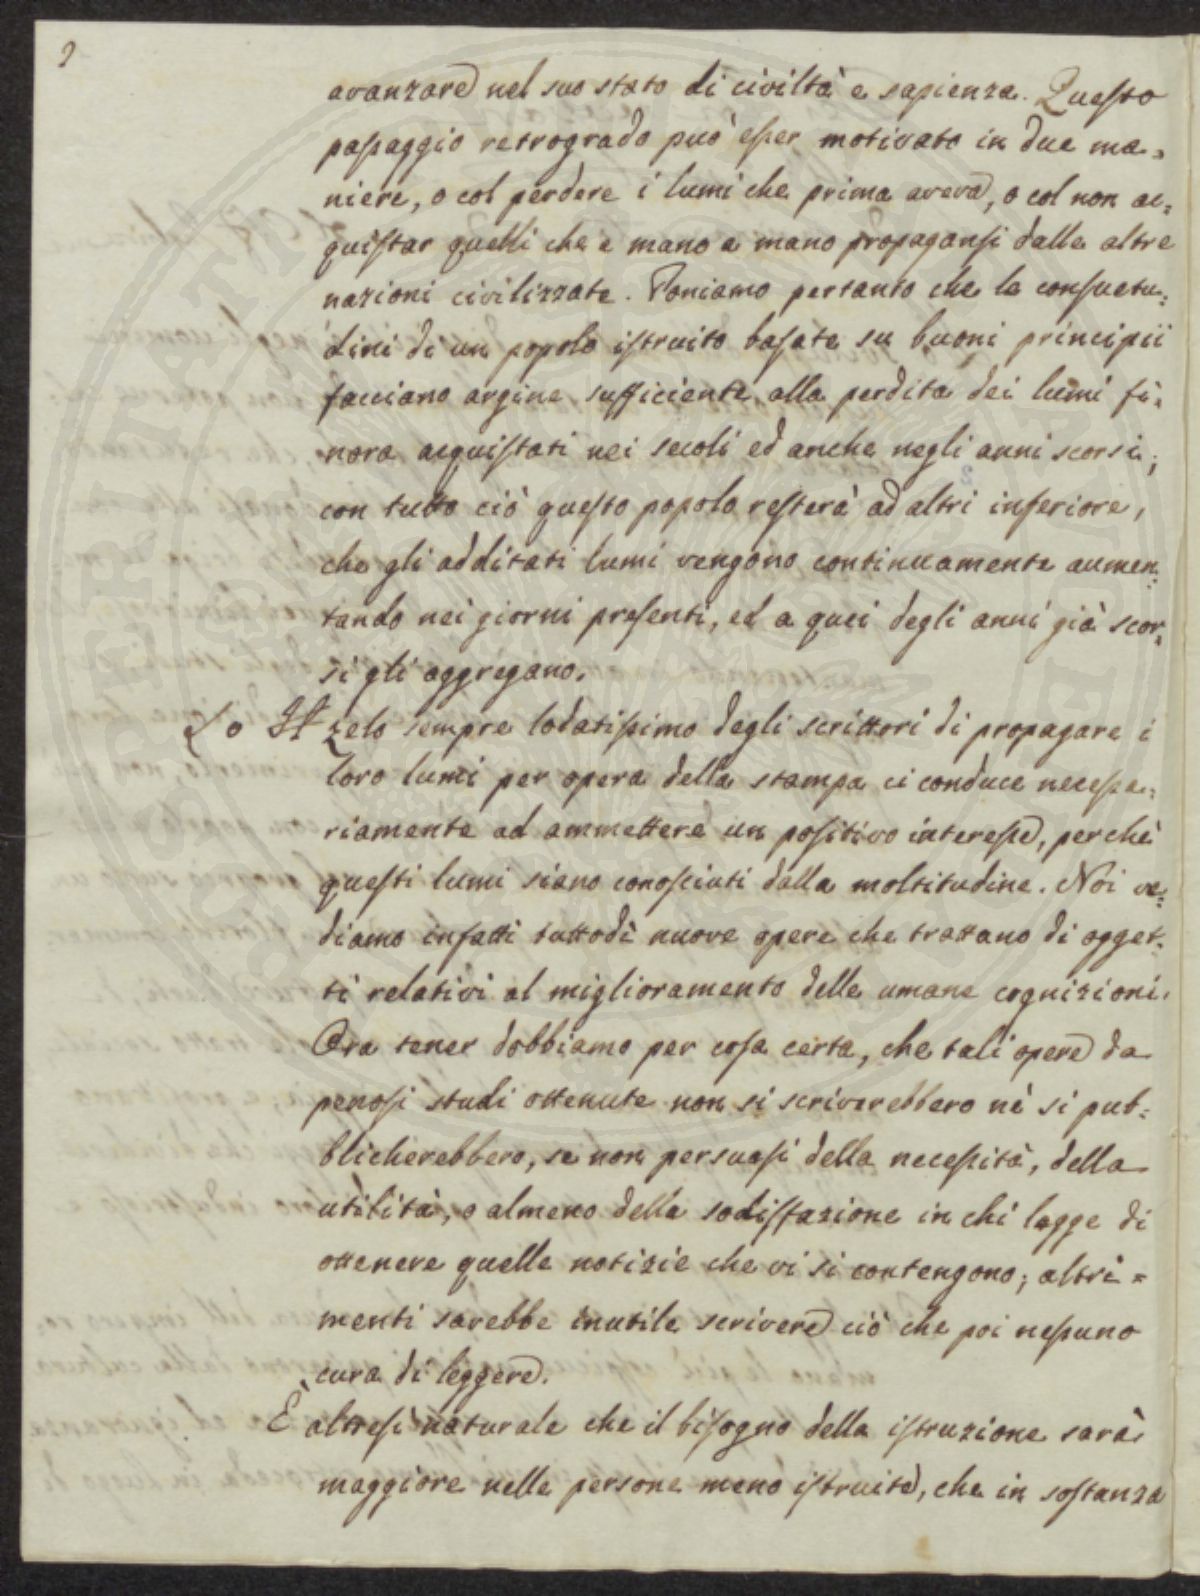 2
avanzare nel suo stato di civiltà e sapienza. Questo
passaggio retrogrado può esser motivato in due ma=
niere, o col perdere i lumi che prima aveva, o col non ac=
quistar quelli che a mano a mano propagansi dalle altre
nazioni civilizzate. Poniamo pertanto che le consuetu=
dini di un popolo istruito basate su buoni principii
facciano argine sufficiente alla perdita dei lumi fi=
nora acquistati nei secoli ed anche negli anni scorsi;
con tutto ciò questo popolo resterà ad altri inferiore,
che gli additati lumi vengono continuamente aumen=
tando nei giorni presenti, ed a quei degli anni già scor=
si gli aggregano.
Lo zelo sempre lodatissimo degli scrittori di propagare i
loro lumi per opera della stampa ci conduce necessa=
riamente ad ammettere un positivo interesse, perchè
questi lumi siano conosciuti dalla moltitudine. Noi ve=
diamo infatti tuttodì nuove opere che trattano di ogget=
ti relativi al miglioramento delle umane cognizioni.
Ora tener dobbiamo per cosa certa, che tali opere da
penosi studi ottenute non si scriverebbero nè si pub=
blicherebbero, se non persuasi della necessità, della
utilità, o almeno della sodisfazione in chi legge di
ottenere quelle notizie che vi si contengono; altri=
menti sarebbe inutile scrivere ciò che poi nessuno
cura di leggere.
È altresì naturale che il bisogno della istruzione sarà
maggiore nelle persone meno istruite, che in sostanza